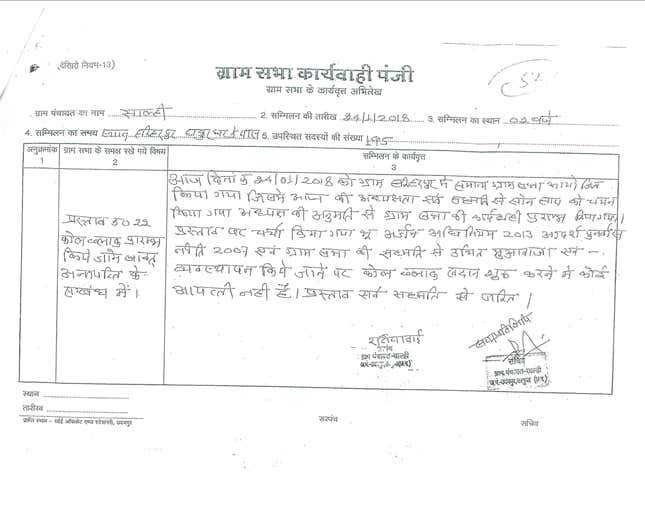 (देखिये नियम-13)
ग्राम सभा कार्यवाही पंजी
ग्राम सभा के कार्यवृत्त अभिलेख
1. ग्राम पंचायत का नाम साल्ही 2. सम्मिलन की तारीख 24/1/2018 3. सम्मिलन का स्थान 02 बजे
4. सम्मिलन का समय 5. उपस्थित सदस्यों की संख्या 195
अनुक्रमांक ग्राम सभा के समक्ष रखे गये विषय सम्मिलन के कार्यवृत्त
1 2 3
प्रस्ताव क्र0 22
कोल ब्लाक प्रारम्भ
किये जाने बावत्
अनापत्ति के
सम्बंध में।
आज दिनांक 24/01/2018 को ग्राम में ग्राम सभा आयोजित
किया गया जिसमें की अध्यक्षता सर्व सहमति से को चयन
किया गया अध्यक्ष की अनुमति से ग्राम सभा की कार्यवही प्रारम्भ किया गया।
प्रस्ताव पर चर्चा किया गया भू अर्जन अधिनियम 2013 आदर्श पुनर्वास
नीति 2007 एवं ग्राम सभा की सहमति से उचित मुआवाजा एवं -
व्यवस्थापन किये जाने पर कोल ब्लाक खदान शुरू करने में कोई
आपत्ती नही है। प्रस्ताव सर्व सहमति से पारित।
सरपंच
ग्राम पंचायत-साल्ही
सत्यप्रतिलिपि
सचिव
ग्राम पंचायत-साल्ही
स्थान
तारीख
सरपंच सचिव